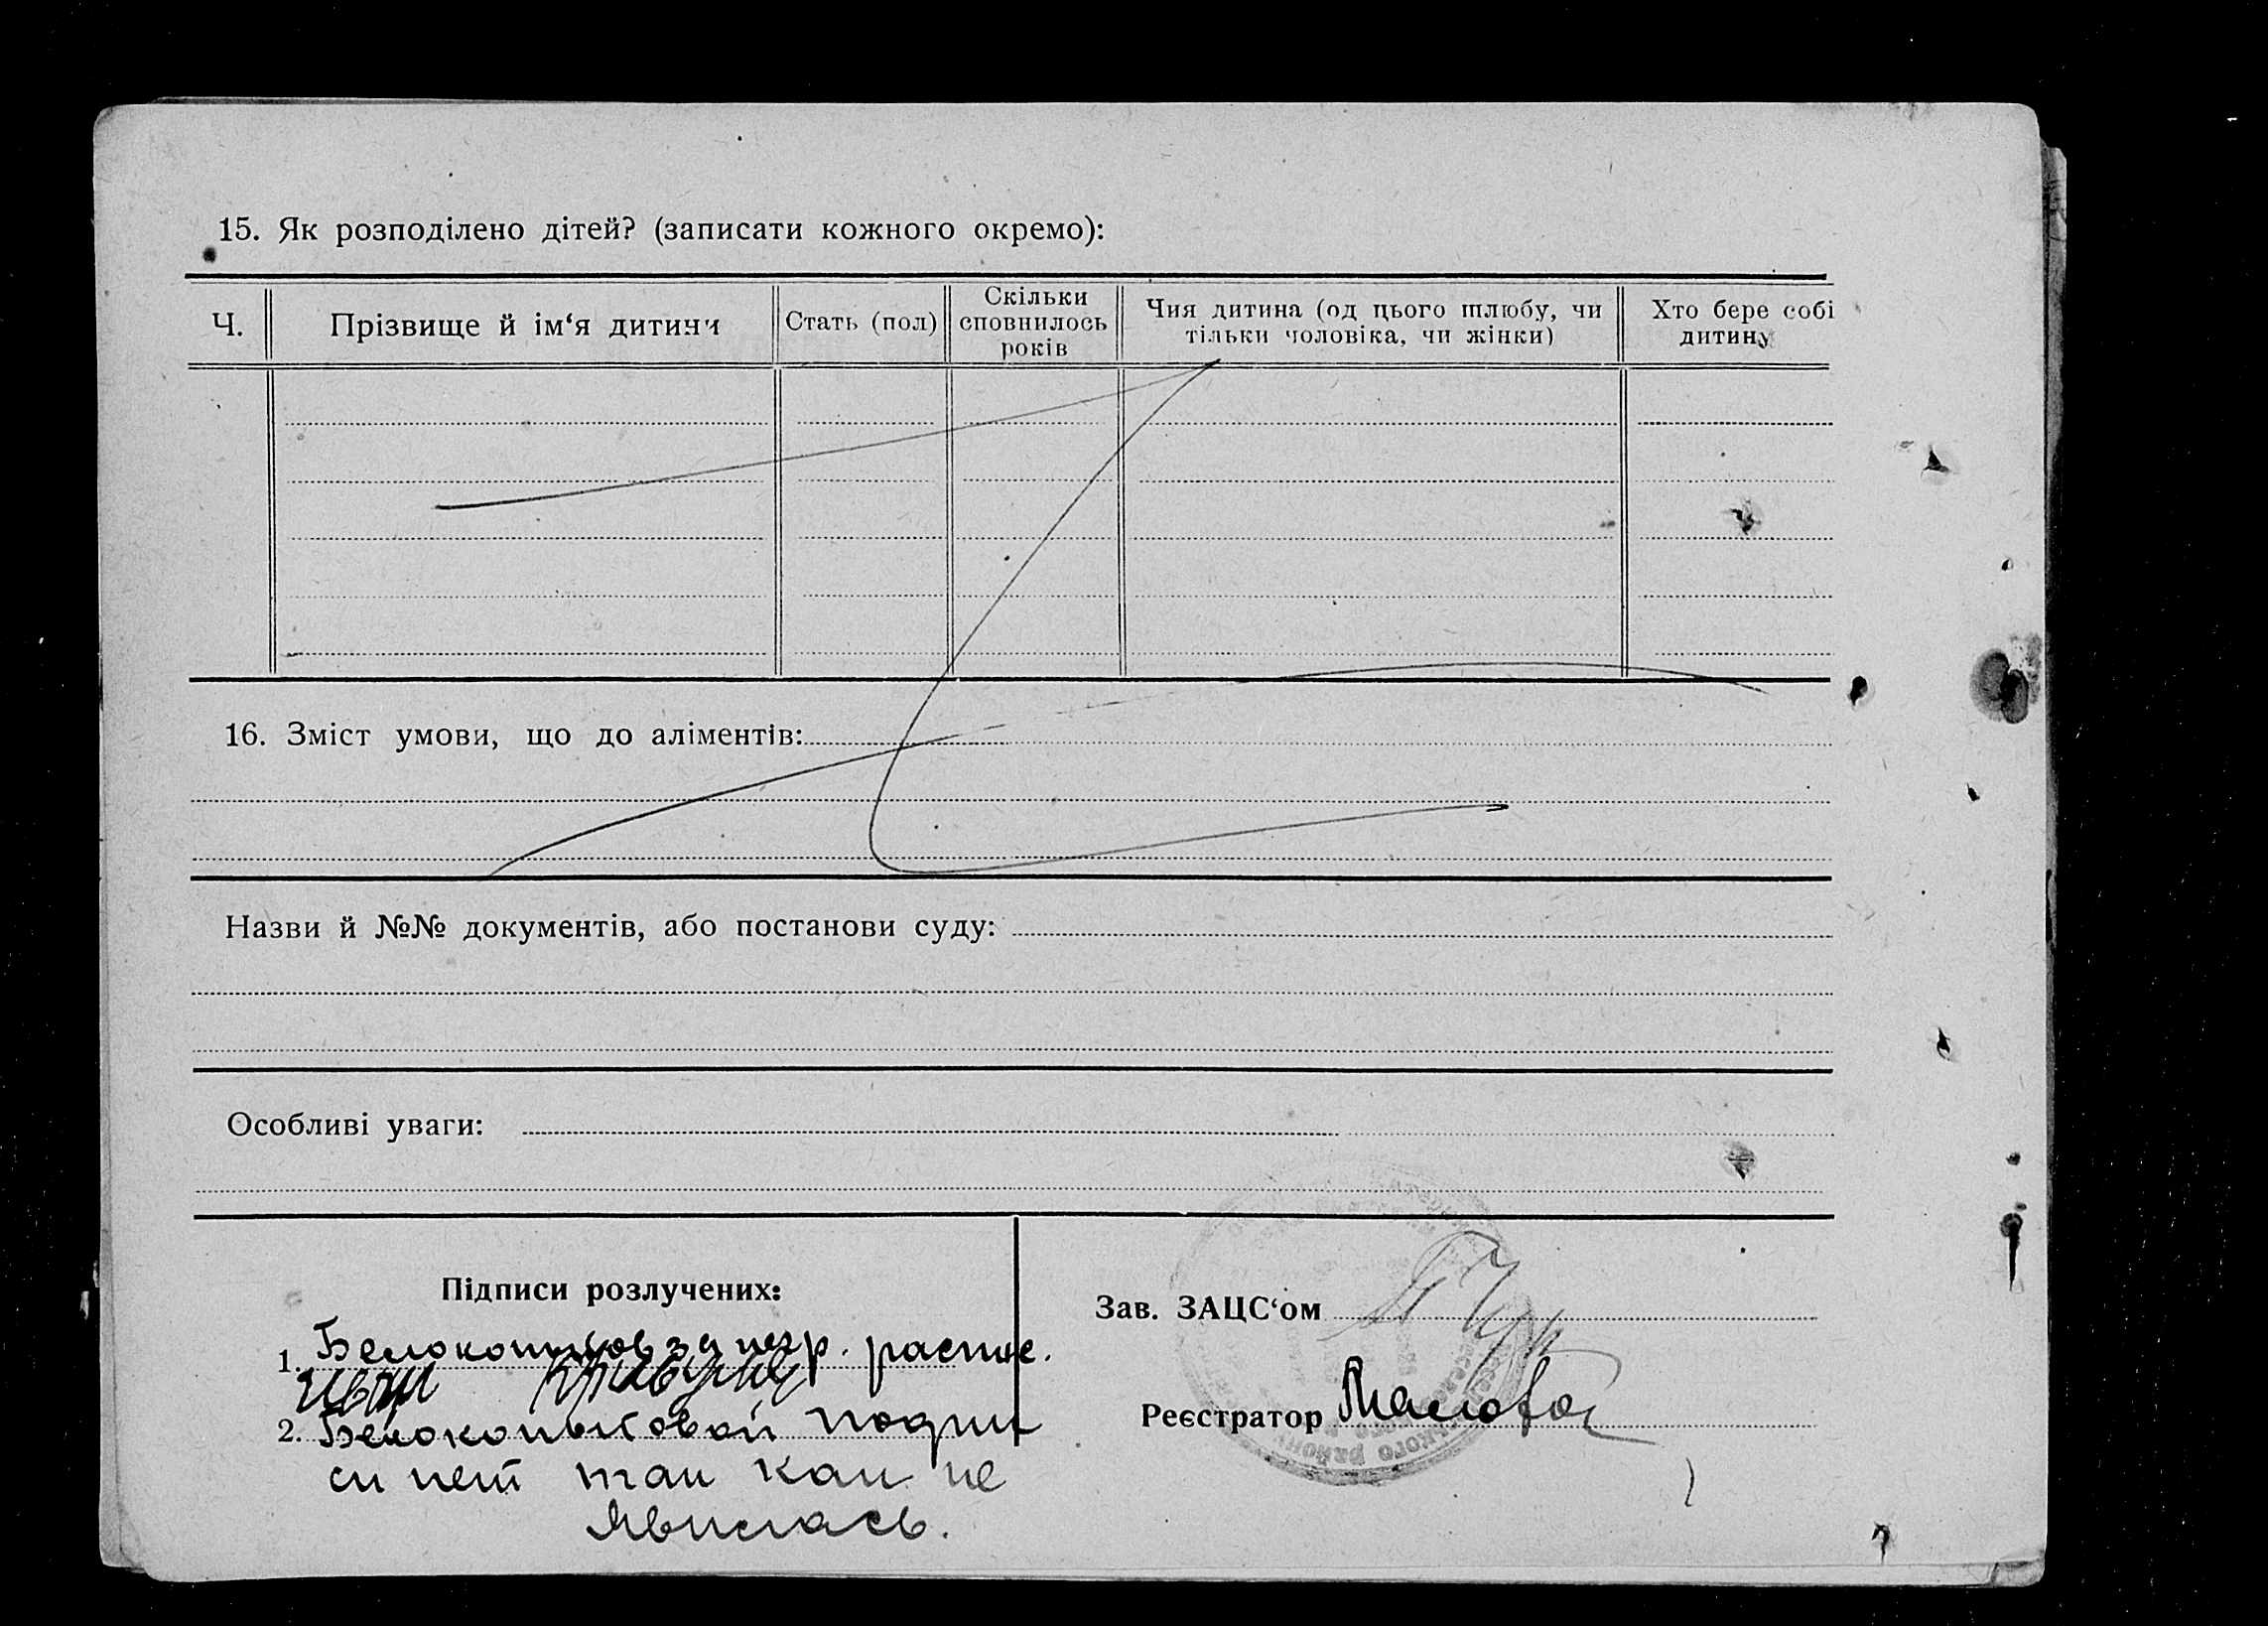 15. Як розподілено дітей? (записати кожного окремо):
Ч.
Прізвище й ім‘я дитини
Стать (пол)
Скільки
сповнилось
років
Чия дитина (од цього шлюбу, чи
тільки чоловіка, чи жінки)
Хто бере собі
дитину
16. Зміст умови, що до аліментів:
Назви й №№ документів, або постанови суду:
Особливі уваги:
Підписи розлучених:
1. Белокопытов за негр. распис.
2. Белокопытовой подпи
си нет так как не
явилась.
Зав. ЗАЦС‘ом
Реєстратор
ського району